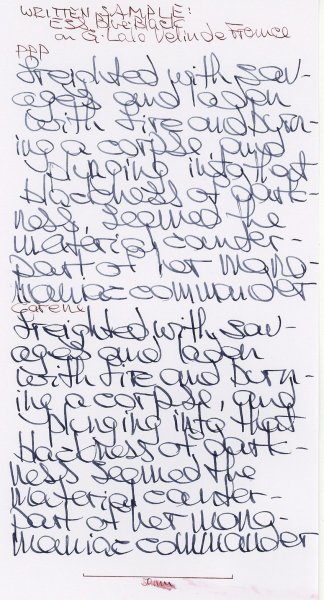 WRITTEN SAMPLE:
ESS Blue Black
on G. Lalo Velin de France
PPP
freighted with sav-
ages and laden
with fire and burn-
ing a corpse and
plunging into that
blackness of dark-
ness, seemed the
material counter-
part of her mono-
maniac commander
Carene
freighted with sav-
ages and laden
with fire and burn-
ing a corpse, and
plunging into that
blackness of dark-
ness seemed the
material counter-
part of her mono-
maniac commander
50mm